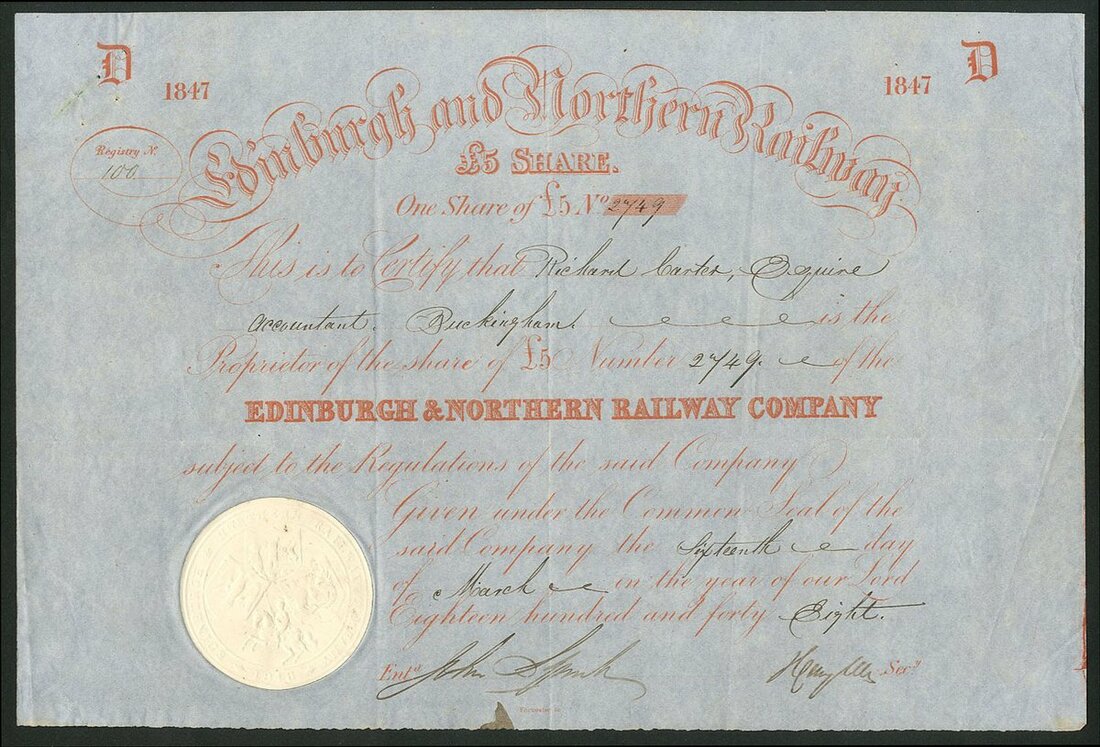 D D
1847 1847
Edinburgh and Northern Railway.
Registry N.
100
£5 SHARE.
One Share of £5 No 2749
This is to Certify that Richard Carter, Esquire
accountant. Buckingham. is the
Proprietor of the share of £5 Number 2749. of the
EDINBURGH & NORTHERN RAILWAY COMPANY
subject to the Regulations of the said Company
Given under the Common Seal of the
said Company the Sixteenth day
of March in the year of our Lord
Eighteen hundred and forty Eight.
Entd John Secy